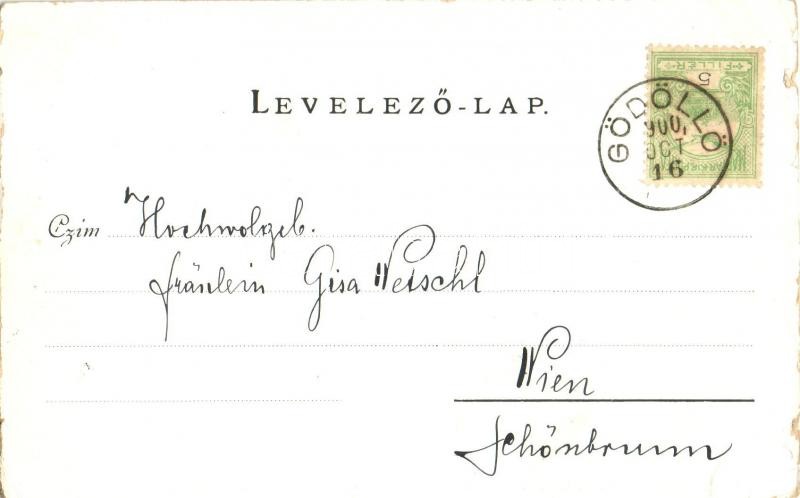 LEVELEZŐ-LAP.
FILLÉR
5
GÖDÖLLŐ
900.
OCT
16
Czim Hochwolgeb.
Fräulein Gisa Wetschl
Wien
Schönbrunn